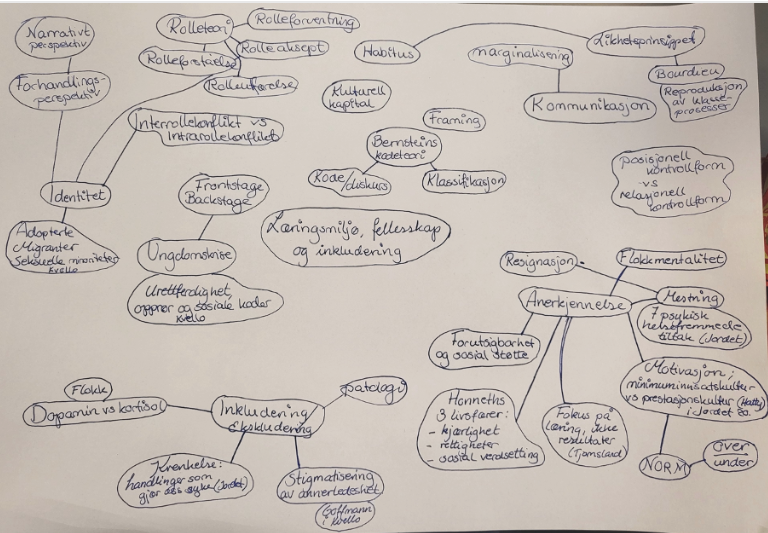 Narrativt
perspektiv
Forhandlings-
perspektiv
Rolleteori
Rolleforventning
Rolleaksept
Rolleforståelse
Rolleutførelse
Interrollekonflikt vs
Intrarollekonflikt
Identitet
Adopterte
Migranter
Seksuelle minoriteter
Kvello
Frontstage
Backstage
Ungdomskrise
Urettferdighet,
oppnør og sosiale koder
Kvello
Habitus
Likhetsprinsippet
Bourdieu
Reproduksjon
av klasse-
prosesser
marginalisering
Kommunikasjon
Kulturell
kapital
Framing
Bernsteins
kodeteori
Kode/diskurs
Klassifikasjon
posisjonell
kontrollform
vs
relasjonell
kontrollform
Læringsmiljø, fellesskap
og inkludering
Resignasjon
Flokkmentalitet
Anerkjennelse
Mestring
7 psykisk
helsefremmede
tiltak (Jordet)
Forutsigbarhet
og sosial støtte
Honneths
3 livsfærer:
- kjærlighet
- rettigheter
- sosial verdsetting
Fokus på
læring, ikke
resultater
(Tjomsland)
Motivasjon;
minimuminnsatskultur
vs prestasjonskultur (Hatty)
i Jordet
NORM
over
under
Flokk
Dopamin vs kortisol
Inkludering
Ekskludering
patologi
Krenkelse:
handlinger som
gjør oss syke (Jordet)
Stigmatisering
av annerledeshet
Goffmann
i Kvello